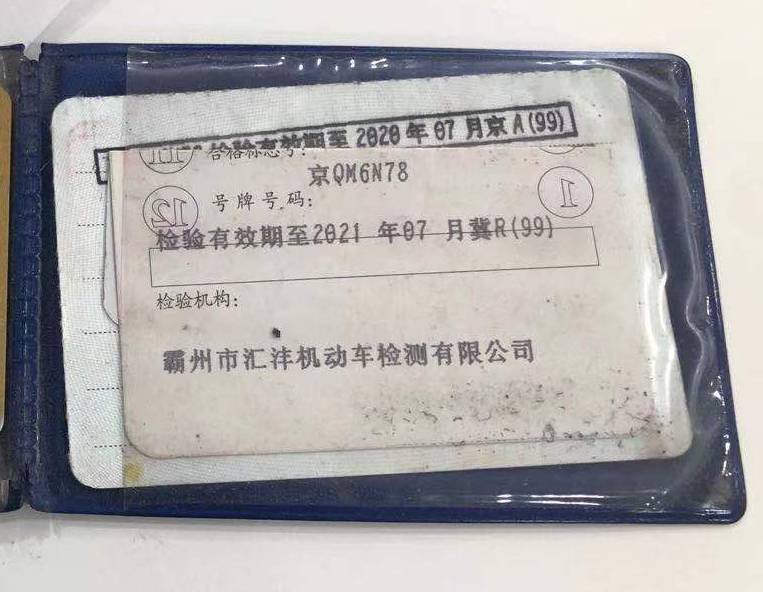 检验有效期至 2020 年 07 月京 A(99)
合格标志号:
11
京QM6N78
号牌号码:
1
12
检验有效期至2021 年07 月冀R(99)
检验机构:
霸州市汇沣机动车检测有限公司